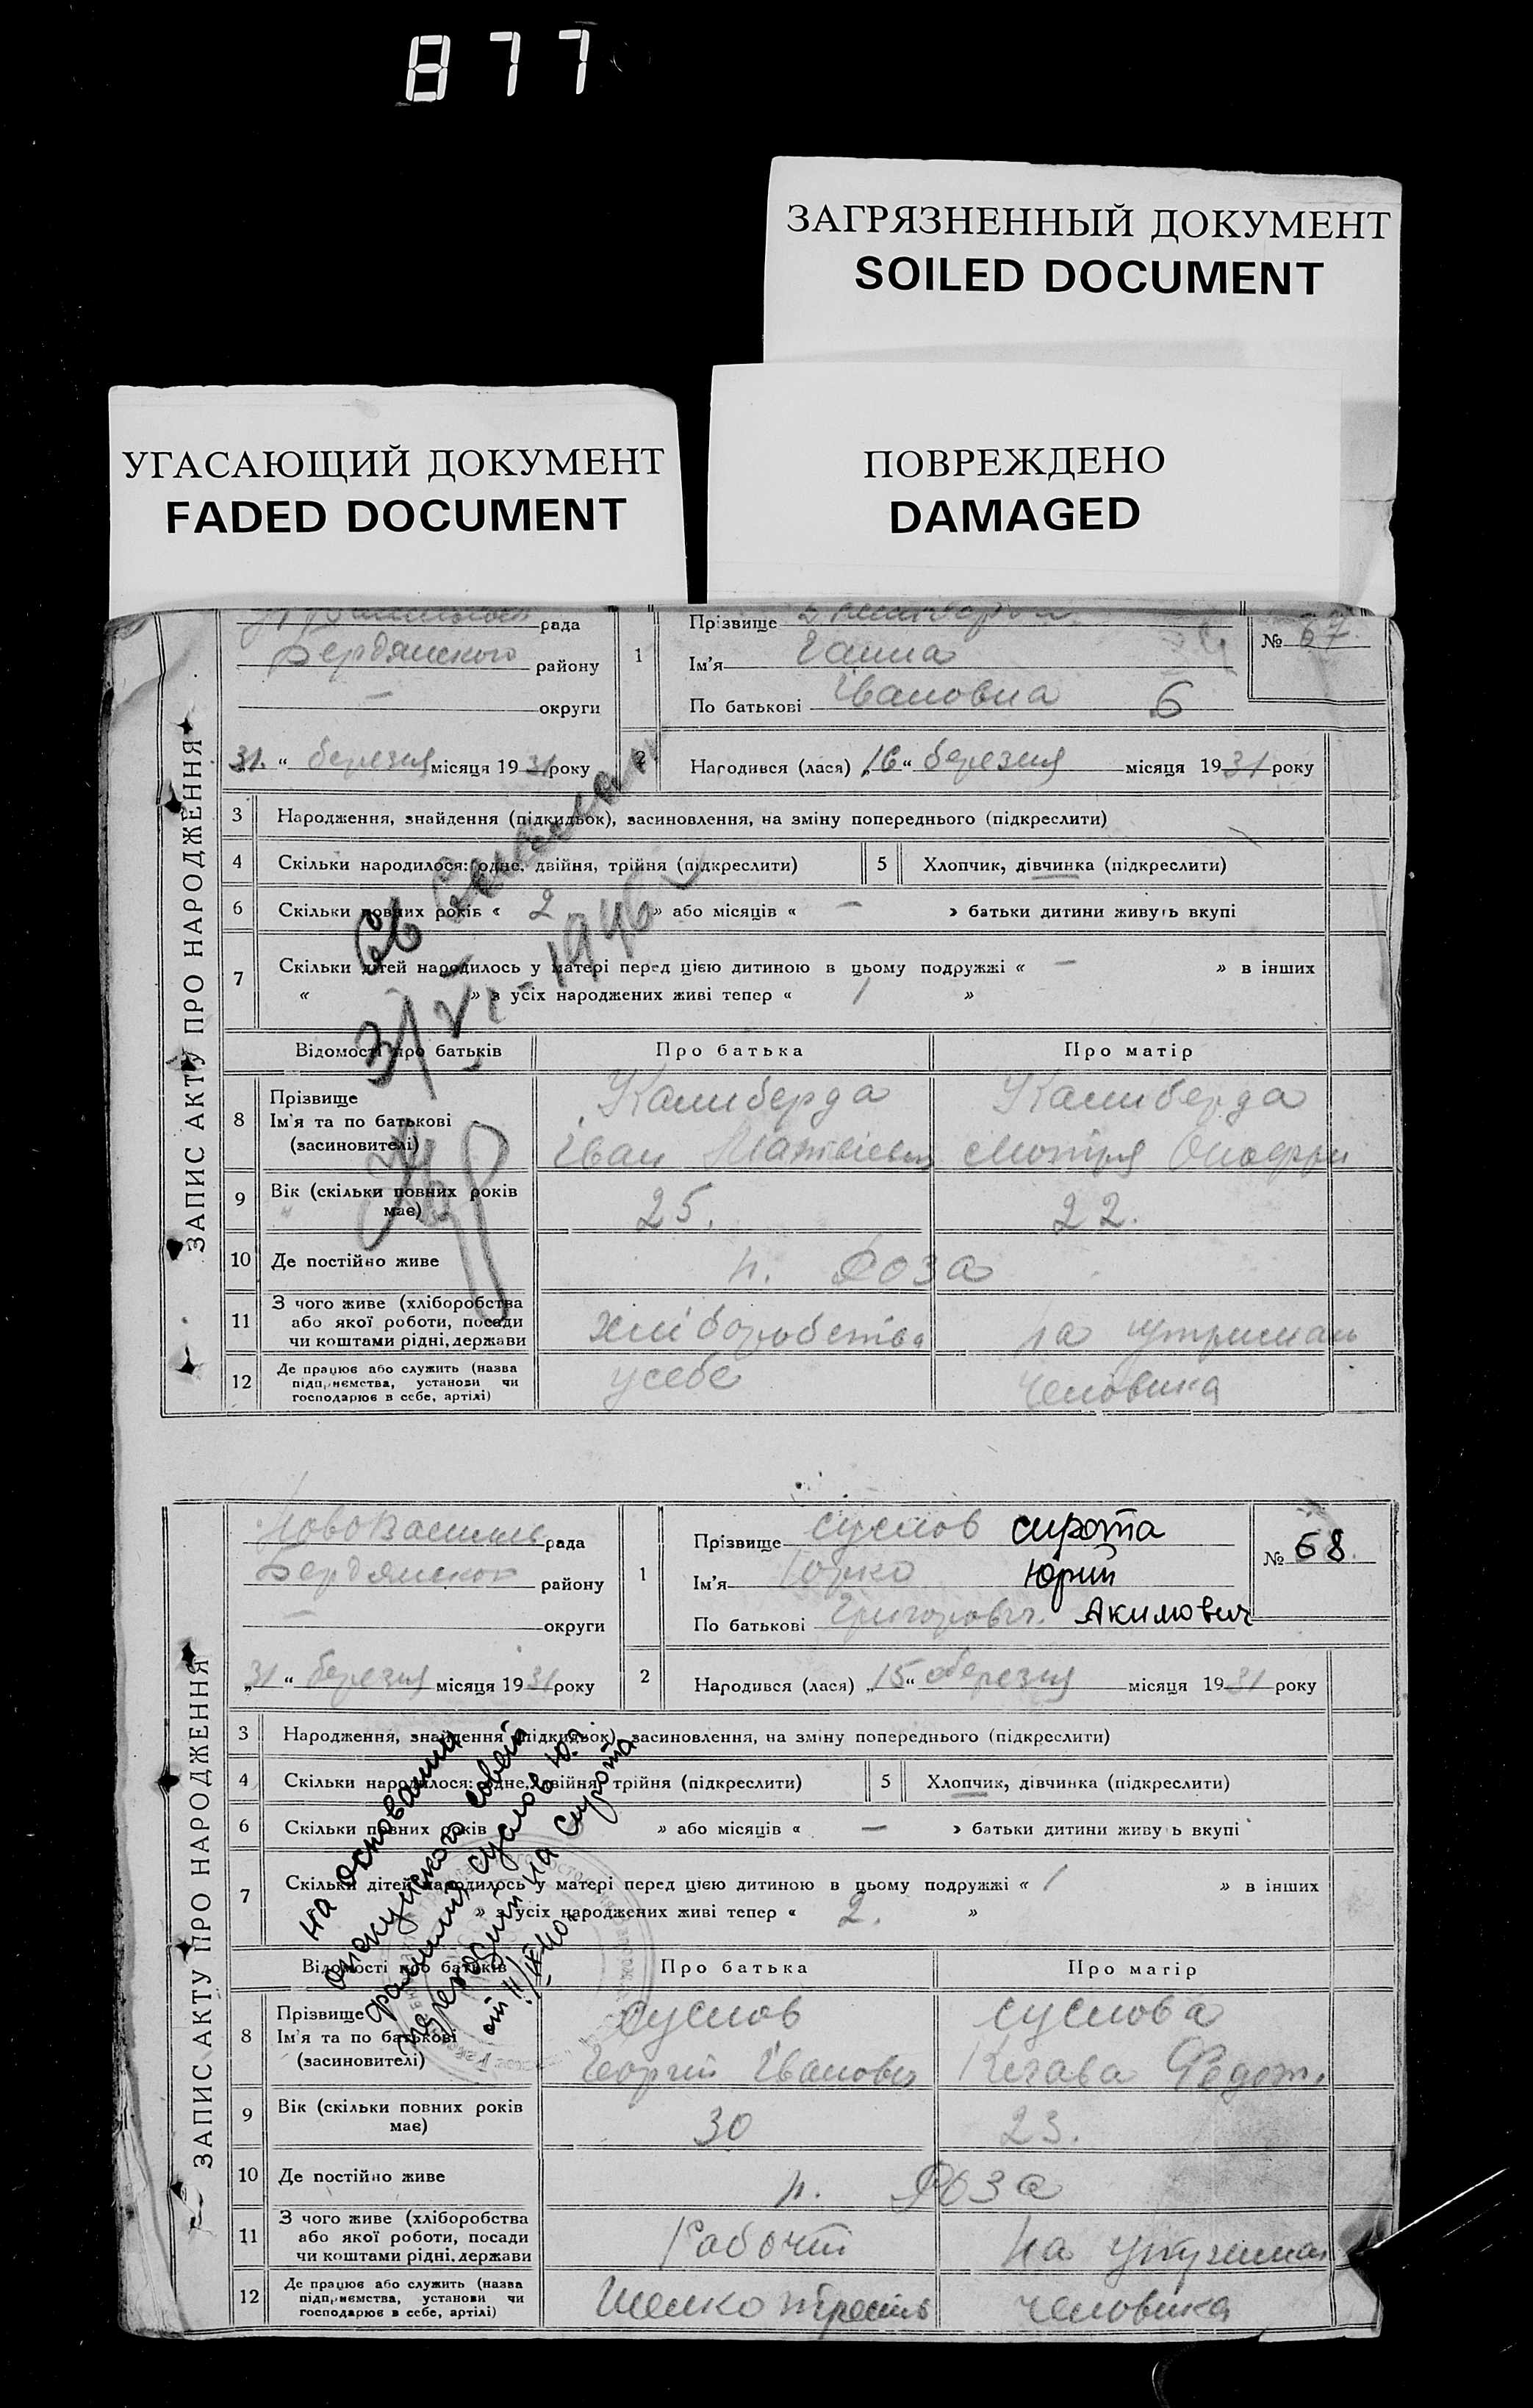 877
ЗАГРЯЗНЕННЫЙ ДОКУМЕНТ
SOILED DOCUMENT
УГАСАЮЩИЙ ДОКУМЕНТ
FADED DOCUMENT
ПОВРЕЖДЕНО
DAMAGED
ЗАПИС АКТУ ПРО НАРОДЖЕННЯ
рада
Бердянського району
— округи
31 " березня місяця 1931 року
1 Прізвище
Ім'я Ганна
По батькові Івановна 6
№ 67
2 Народився (лася) „16" березня місяця 1931 року
3 Народження, знайдення (підкидьок), засиновлення, на зміну попереднього (підкреслити)
4 Скільки народилося: одне, двійня, трійня (підкреслити) 5 Хлопчик, дівчинка (підкреслити)
6 Скільки повних років « 2 » або місяців « — » батьки дитини живуть вкупі
7 Скільки дітей народилось у матері перед цією дитиною в цьому подружжі « — » в інших
« » з усіх народжених живі тепер « 1 »
1946
Відомості про батьків Про батька Про матір
8 Прізвище
Ім'я та по батькові
(засиновителі)
Камберда
Іван
Камберда
Мотря
9 Вік (скільки повних років має) 25. 22.
10 Де постійно живе п. Роза
11 З чого живе (хліборобства
або якої роботи, посади
чи коштами рідні, держави
хліборобства на утриман
12 Де працює або служить (назва
підприємства, установи чи
господарює в себе, артілі)
у себе человика
ЗАПИС АКТУ ПРО НАРОДЖЕННЯ
рада
району
— округи
„31 " березня місяця 1931 року
1 Прізвище Суслов Сирота
Ім'я Юрко Юрий
По батькові Григорович. Акимович
№ 68
2 Народився (лася) „15" березня місяця 1931 року
3 Народження, знайдення (підкидьок), засиновлення, на зміну попереднього (підкреслити)
4 Скільки народилося: одне, двійня, трійня (підкреслити) 5 Хлопчик, дівчинка (підкреслити)
6 Скільки повних років » або місяців « — » батьки дитини живуть вкупі
7 Скільки дітей народилось у матері перед цією дитиною в цьому подружжі « 1 » в інших
» з усіх народжених живі тепер « 2. »
на основании
опекунского совета
фамилия Суслов Ю.
переходит на Сирота
Відомості про батьків Про батька Про матір
8 Прізвище
Ім'я та по батькові
(засиновителі)
Суслов
Георгій Іванович
Суслова
Федот.
9 Вік (скільки повних років має) 30 23.
10 Де постійно живе п. Роза
11 З чого живе (хліборобства
або якої роботи, посади
чи коштами рідні, держави
Рабочий на утриман
12 Де працює або служить (назва
підприємства, установи чи
господарює в себе, артілі)
Шелкотрест человика